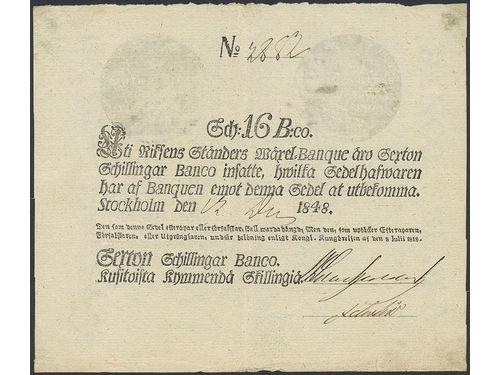 No 2882
Sch: 16 B:co.
Uti Riksens Ständers Wäxel-Banque äro Sexton
Schillingar Banco insatte, hwilka Sedelhafwaren
har af Banquen emot denna Sedel at utbekomma.
Stockholm den 12 Dec 1848.
Den som denne Sedel efterapar eller förfalskar, skal warda hängd; Men den, som uptäcker Efteraparen,
Förfalskaren, eller Utprånglaren, undfår belöning enligt Kongl. Kungörelsen af den 9 Julii
Sexton Schillingar Banco.
Kusitoista Kymmendä Skillingiä